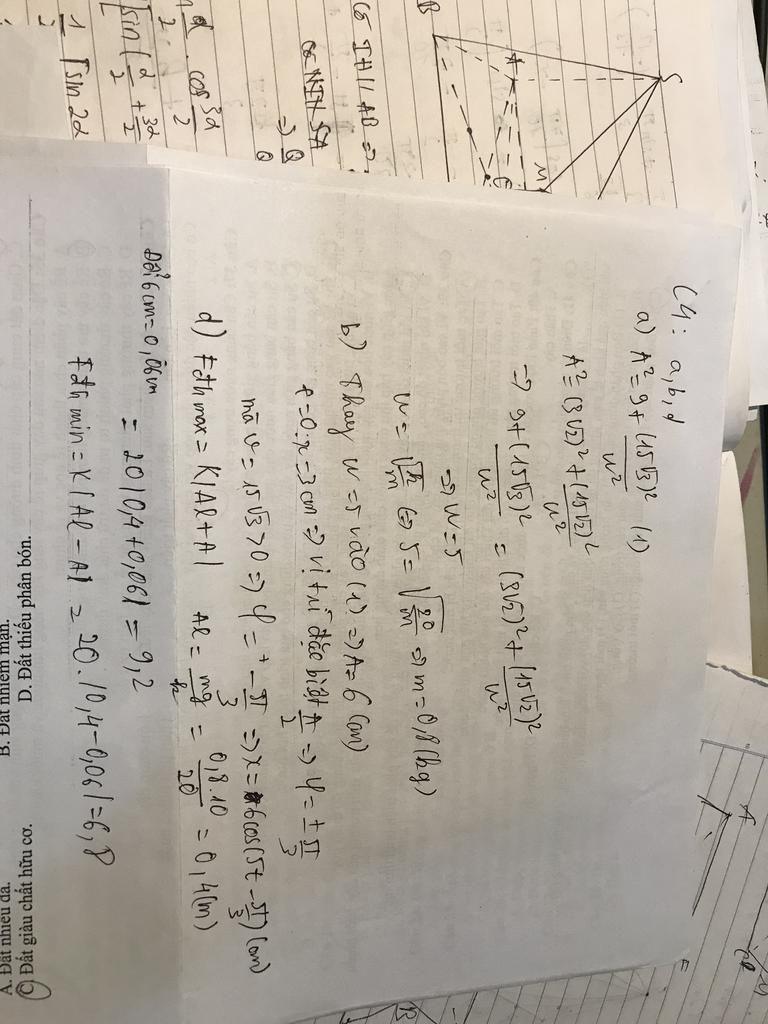 C4: a, b, d
a) A² = 9 + (15√3)²/w² (1)
A² = (3√2)² + (15√2)²/w²
=> 9 + (15√3)²/w² = (3√2)² + (15√2)²/w²
=> w = 5
w = √(k/m) <=> 5 = √(20/m) => m = 0,8 (kg)
b) Thay w = 5 vào (1) => A = 6 (cm)
t = 0: x = 3 cm => vị trí đặc biệt A/2 => φ = ± π/3
mà v = 15√3 > 0 => φ = - π/3 => x = 6 cos(5t - π/3) (cm)
d) Fđh max = K|Δl + A| Δl = mg/k = 0,8.10/20 = 0,4 (m)
Đổi 6 cm = 0,06 m
= 20|0,4 + 0,06| = 9,2
Fđh min = K|Δl - A| = 20.|0,4 - 0,06| = 6,8
B
S
A
C
M
IH // AB =>
SA
cos 3α/2
sin(α/2 + 3α/2
1/2 [sin 2α
A. Đất nhiều đá.
B. Đất nhiễm mặn.
C. Đất giàu chất hữu cơ.
D. Đất thiếu phân bón.